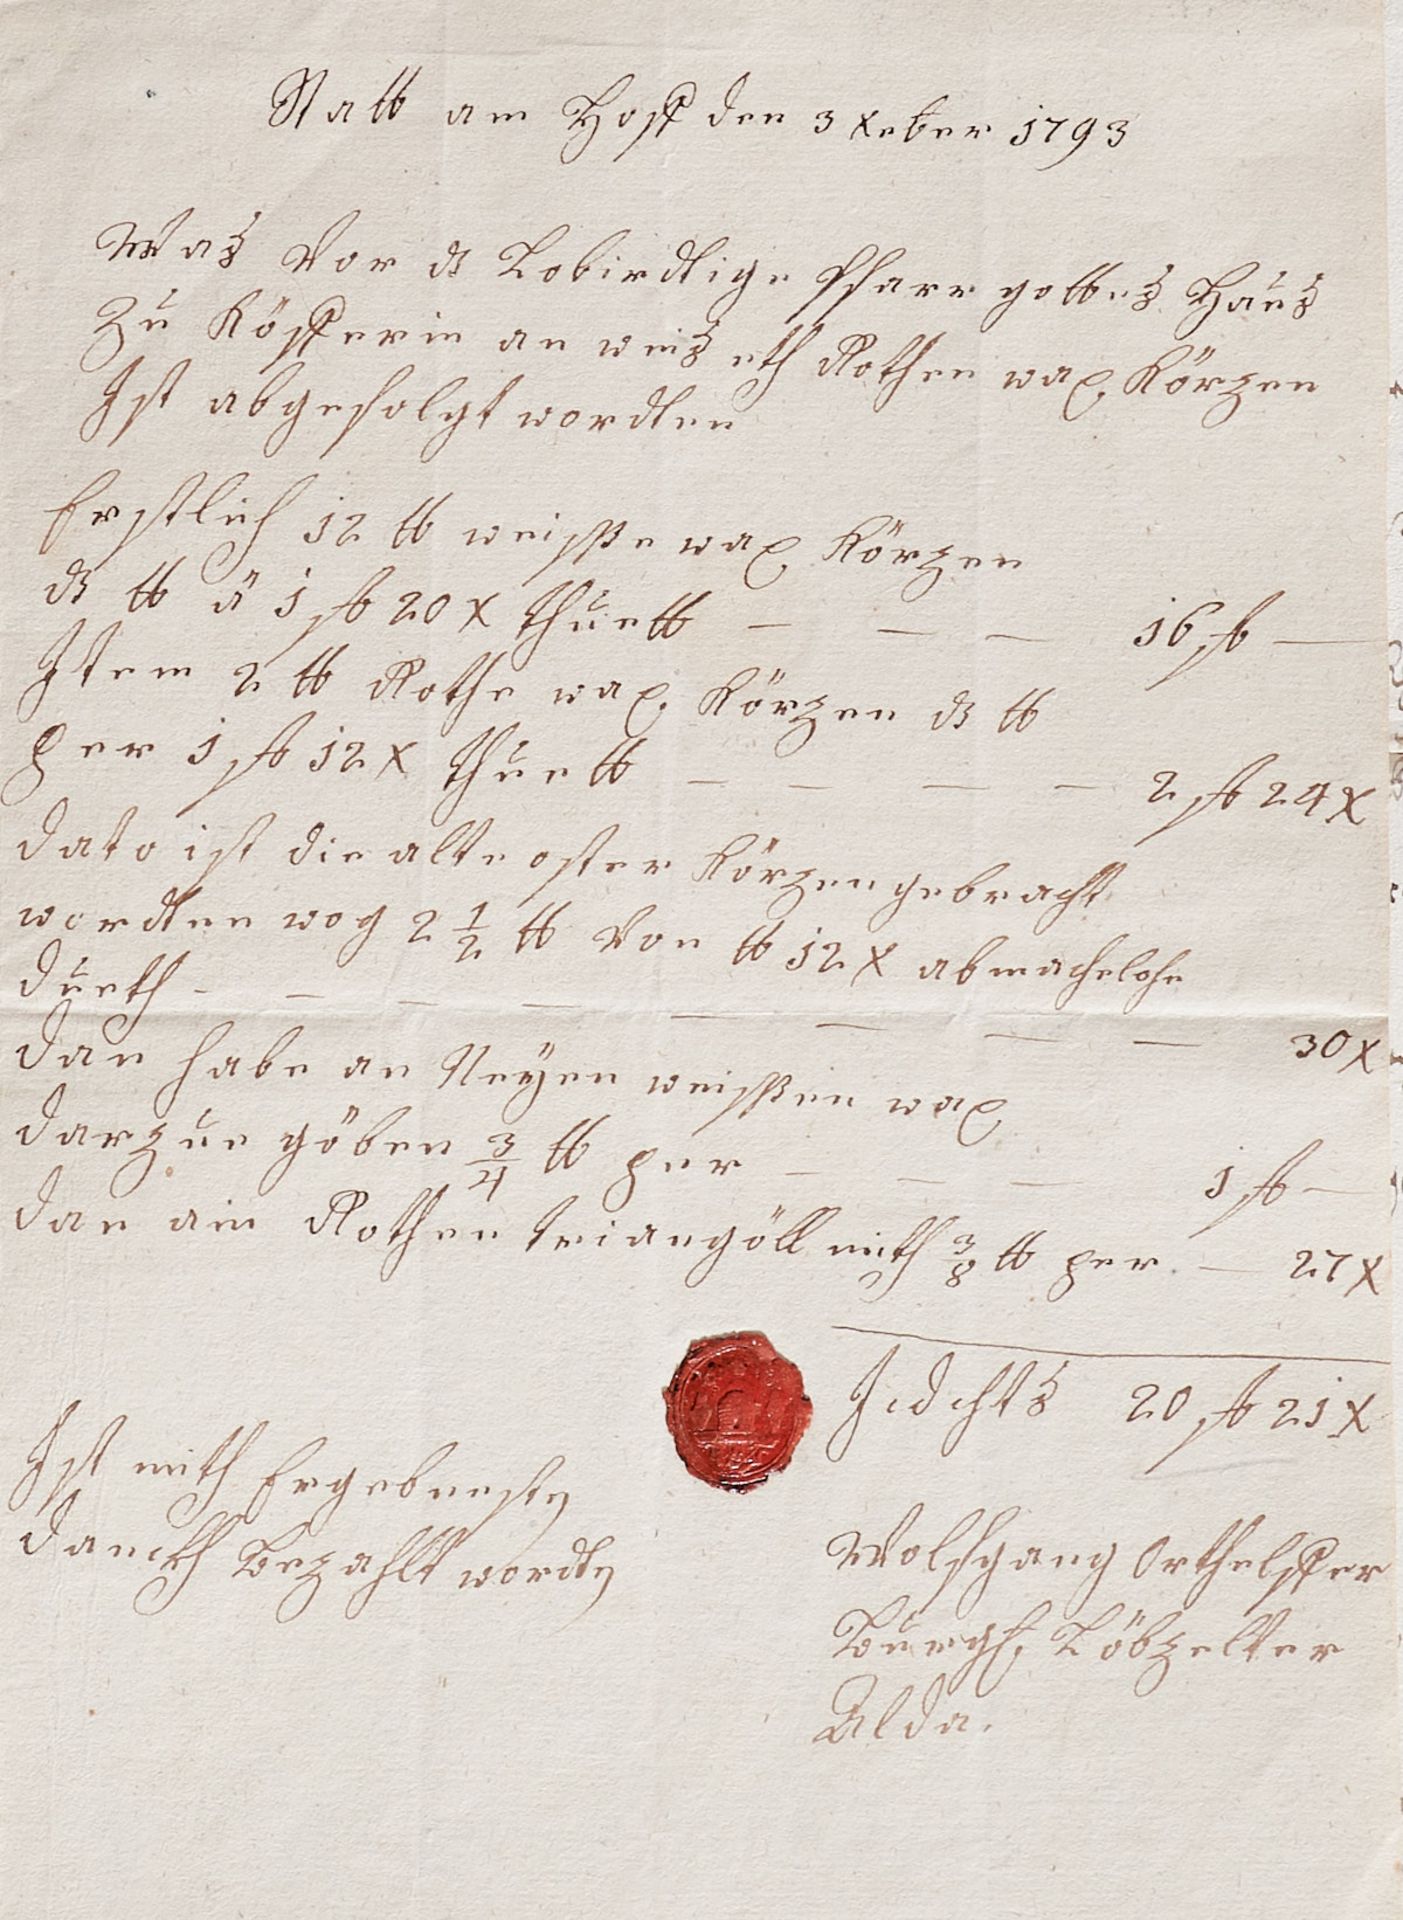 Statt am Hoff den 3 Xeber 1793
Waß Vor ds Lobirdtige Pfarr gotteß Hauß
Zu Kösferin an weiß eth Rothen wax Körzen
Ist abgefolgt wordten
Erstlich 12 ℔ weisse wax Körzen
ds ℔ ä 1 fl 20 x thuett — — — 16 fl —
Item 2 ℔ Rothe wax Körzen ds ℔
per 1 fl 12 x thuett — — — — 2 fl 24 x
dato ist die alte oster Körzen gebracht
wordten wog 2 1/2 ℔ Von ℔ 12 x abmachelohn
dueth — — — — — — — — 30 x
dan habe an Neyen weissen wax
darzue göben 3/4 ℔ per — — — 1 fl —
dan ain Rothen triangöll mith 3/8 ℔ per — 27 x
20 fl 21 x
Ist mith Ergebnesten
danckh Bezahlt wordten
Wolfgang Orthelffer
Burgl. Löbzelter
Alda.